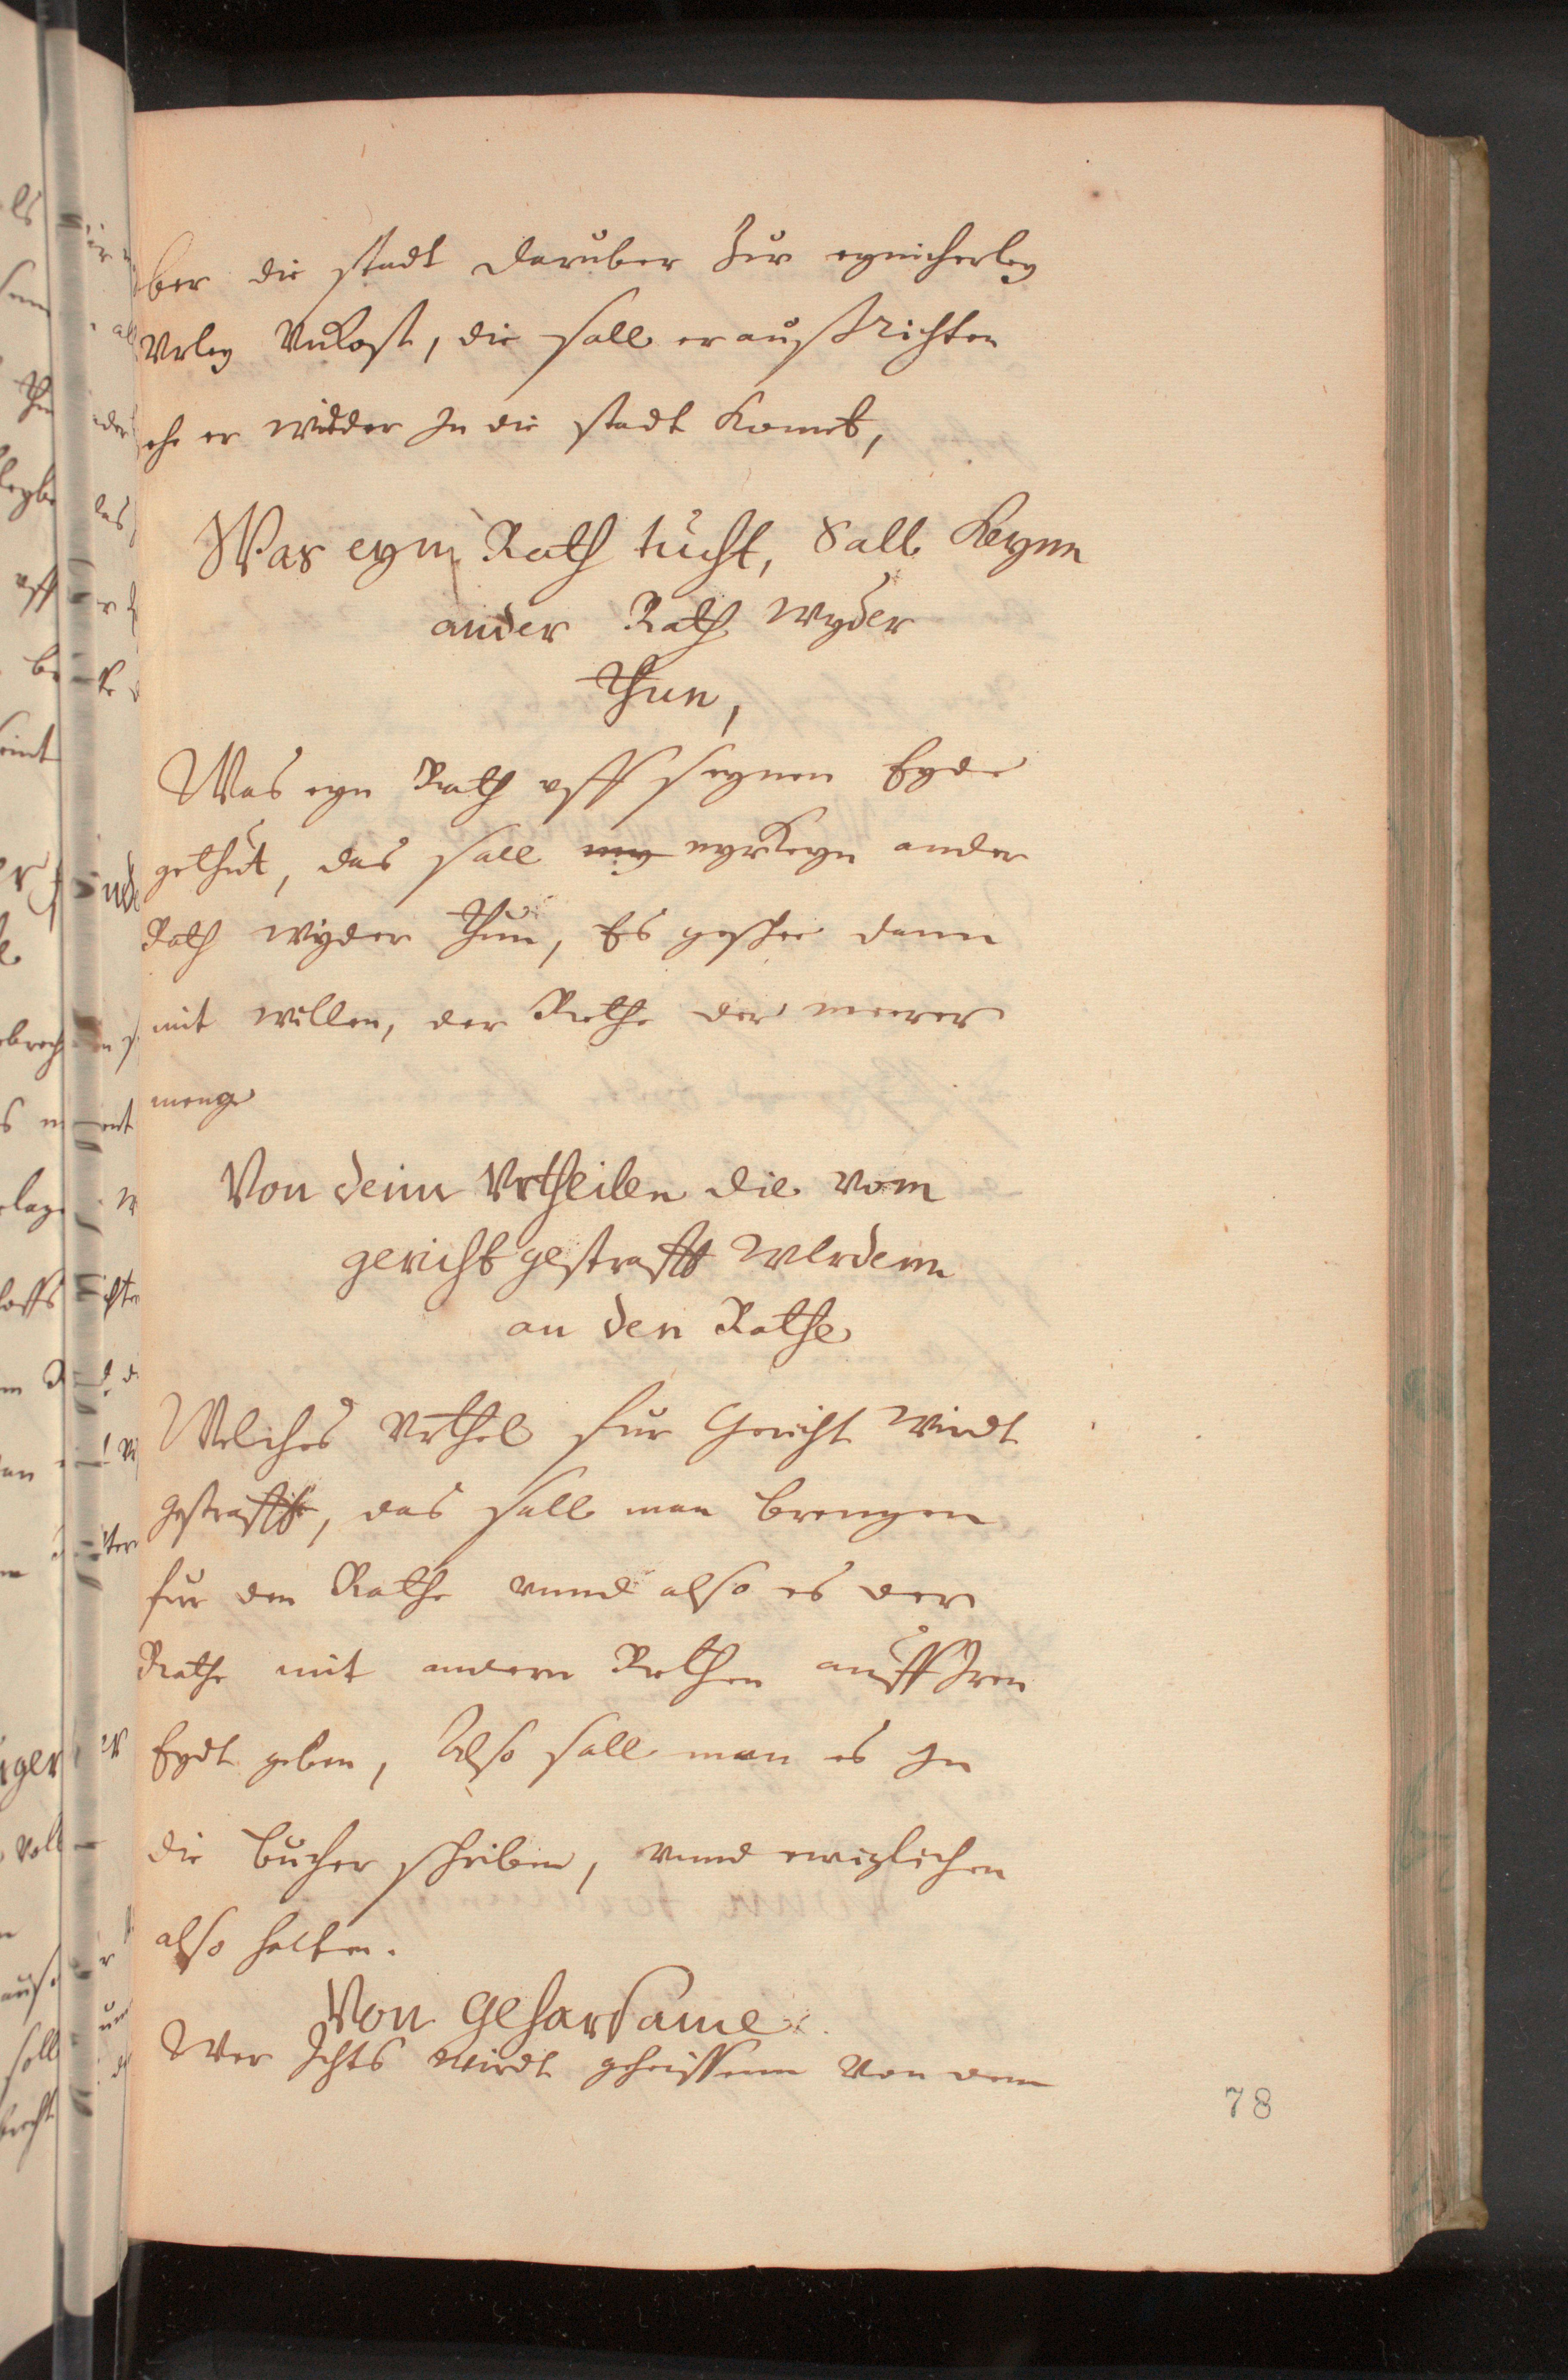 ber die stadt daruber Zur eynicherley
Vrley Vnkost, die sall er ausß Richten
ehe er widder In die stadt komet,
Was eyn Rath tucht, Sall keynn
ander Rath wyder
Thun,
Was eyn Rath vff seynen Eyde
gethut, das sall nyrkeyn ander
Rath wyder thun, Es geschee dann
mit willen, der Rethe der merer
menge
Von denn Vrtheilen die vom
gericht gestrafft werdenn
an den Rathe
Welches Vrthel fur Gericht wirdt
gestrafft, das sall man brengen
fur den Rathe vnnd also es der
Rathe mit andern Rethen auff Iren
Eydt geben, Also sall man es In
die bucher schriben, vnnd ewiglichen
also halten.
Von gehorsame
Wer Ichts wirdt geheissenn Von dem
78